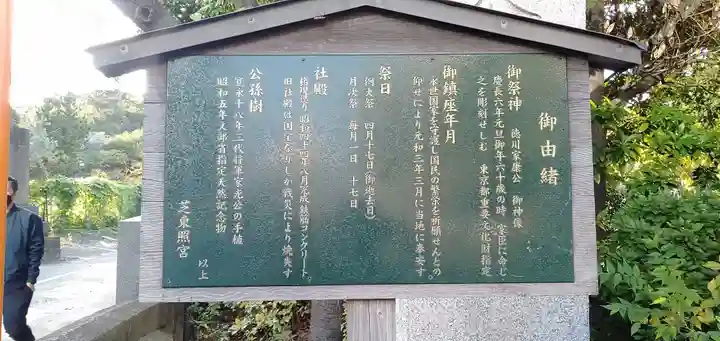 御由緒
御祭神　徳川家康公　御神像
慶長六年元旦御年六十歳の時　家臣に命じ
之を彫刻せしむ　東京都重要文化財指定
御鎮座年月
永世国家を守護し国民の繁栄を祈願せんとの
仰せにより元和三年三月に当地に奉安す。
祭日
例大祭　四月十七日(御逝去日)
月次祭　毎月一日　十七日
社殿
権現造り　昭和四十四年八月完成鉄筋コンクリート。
旧社殿は国宝なりしが戦災により焼失す
公孫樹
寛永十八年三代将軍家光公の手植
昭和五年文部省指定天然記念物
以上
芝東照宮